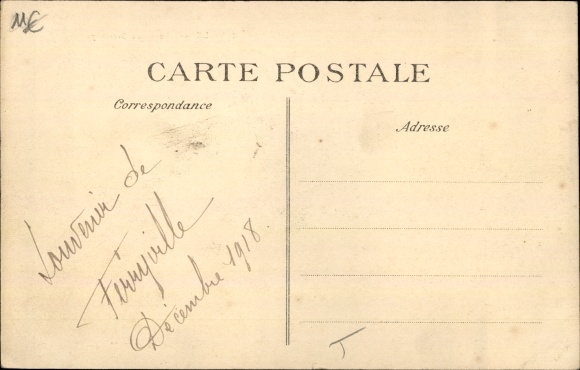 CARTE POSTALE
Correspondance
Adresse
Souvenir de
Ferryville
Décembre 1918.